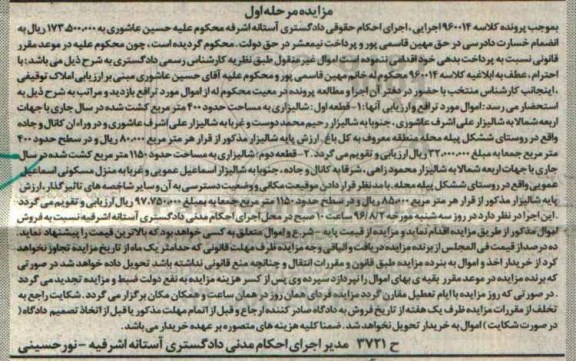 مزایده مرحله اول
بموجب پرونده کلاسه ۹۶۰۰۱۴ اجرایی ، اجرای احکام حقوقی دادگستری آستانه اشرفه محکوم علیه حسین عاشوری به ۱۷۳.۵۰۰.۰۰۰ ریال به
انضمام خسارت دادرسی در حق مهین قاسمی پور و پرداخت نیمعشر در حق دولت . محکوم گردیده است ، چون محکوم علیه در موعد مقرر
قانونی نسبت به پرداخت بدهی خود اقدامی ننموده است اموال غیر منقول طبق نظریه کارشناس رسمی دادگستری به شرح ذیل می باشد: با
احترام ، عطف به ابلاغیه کلاسه ۹۶۰۰۱۴ محکوم له خانم مهین قاسمی پور و محکوم علیه آقای حسین عاشوری مبنی بر ارزیابی املاک توقیفی
، اینجانب کارشناس منتخب با حضور در دفتر آن اجرا و مطالعه پرونده در معیت محکوم له از اموال مورد ترافع بازدید و مراتب به شرح ذیل به
استحضار می رسد : اموال مورد ترافع و ارزیابی آنها : ۱- قطعه اول : شالیزاری به مساحت حدود ۴۰۰ متر مربع کشت شده در سال جاری با جهات
اربعه شمالا به شالیزار علی اشرف عاشوری ، جنوبا به شالیزار رحیم محمد دوست و غربا به شالیزار علی اشرف عاشوری و در وراء ان کانال و جاده
واقع در روستای ششکل پیله محله منطقه معروف به کل باغ . ارزش پایه شالیزار مذکور از قرار هر متر مربع ۸۰.۰۰۰ ریال و در سطح حدود ۴۰۰
متر مربع جمعا به مبلغ ۳۲.۰۰۰.۰۰۰ ریال ارزیابی و تقویم می گردد . ۲- قطعه دوم : شالیزاری به مساحت حدود ۱۱۵۰ متر مربع کشت شده در سال
جاری با جهات اربعه شمالا به شالیزار محمود زاهی ، شرقا به کانال و جاده ، جنوبا به شالیزار اسماعیل عمویی و غربا به منزل مسکونی اسماعیل
عمویی واقع در روستای ششکل پیله محله . با مد نظر قرار دادن موقعیت مکانی و وضعیت دسترسی به آن و سایر شاخصه های تاثیر گذار ، ارزش
پایه شالیزار مذکور از قرار هر متر مربع ۸۵.۰۰۰ ریال و در سطح حدود ۱۱۵۰ متر مربع جمعا به بمبلغ ۹۷.۷۵۰.۰۰۰ ریال ارزیابی و تقویم می گردد
. این اجرا در نظر دارد در روز سه شنبه مورخه ۹۶/۸/۲ ساعت ۱۰ صبح در محل اجرای احکام مدنی دادگستری آستانه اشرفیه نسبت به فروش
اموال مذکور از طریق مزایده اقدام نماید و مزایده از قیمت پایه - شرع و اموال متعلق به کسی خواهد بود که بالاترین قیمت را پیشنهاد نماید
ده درصد از قیمت فی المجلس از برنده مزایده دریافت و الباقی وجه مزایده ظرف مهلت قانونی که حداکثر یک ماه از تاریخ مزایده تجاوز نخواهد
کرد از خریدار اخذ و اموال به برنده مزایده طبق قانون و مقررات انتقال و چنانچه منع قانونی نداشته باشد تحویل داده خواهد شد . در صورتی که
که برنده مزایده در موعد مقرر بقیه ی بهای اموال را نپردازد سپرده وی پس از کسر هزینه مزایده به نفع دولت ضبط و مزایده تجدید می گردد
. در صورتی که روز مزایده با ایام تعطیل مقارن گردد مزایده فردای همان روز در همان ساعت و همکان مکان برگزار می گردد . شکایت راجع به
تخلف از مقررات مزایده ظرف یک هفته از تاریخ فروش به دادگاه صادر کننده ارجاع و قبل از اتمام مهلت مذکور یا قبل از اتخاذ تصمیم دادگاه (
در صورت شکایت ) اموال به خریدار تحویل نخواهد شد . ضمنا کلیه هزینه های متصوره بر عهده خریدار می باشد .
ح ۳۷۲۱ مدیر اجرای احکام مدنی دادگستری آستانه اشرفیه - نور حسینی